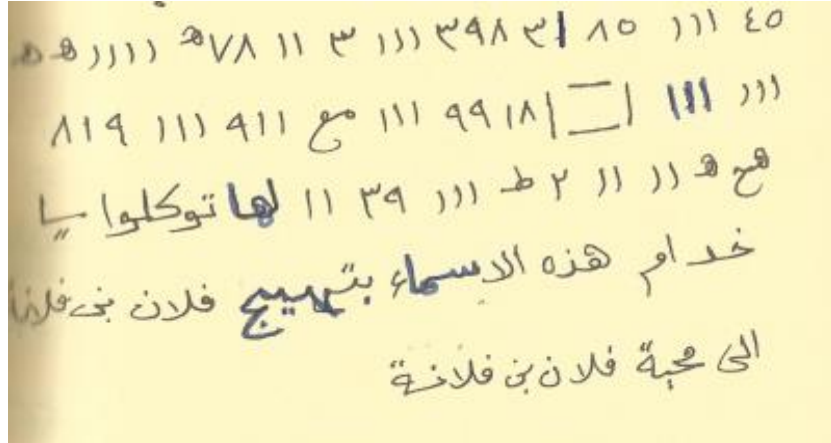 ٤٥ ١١١ ٨٥ ٣١ ٣٩٨ ١١١ ٣ ١١ ٧٨ ه ١١١١ ه ه
١١١ ١١١ ا ا ٩٩١٨ ١١١ مع ٩١١ ١١١ ٨١٩
هج ه ١١ ١١ ٢ ط ١١١ ٣٩ ١١ لها توكلوا يا
خدام هذه الاسماء بتهييج فلان بن فلانة
الى محبة فلان بن فلانة